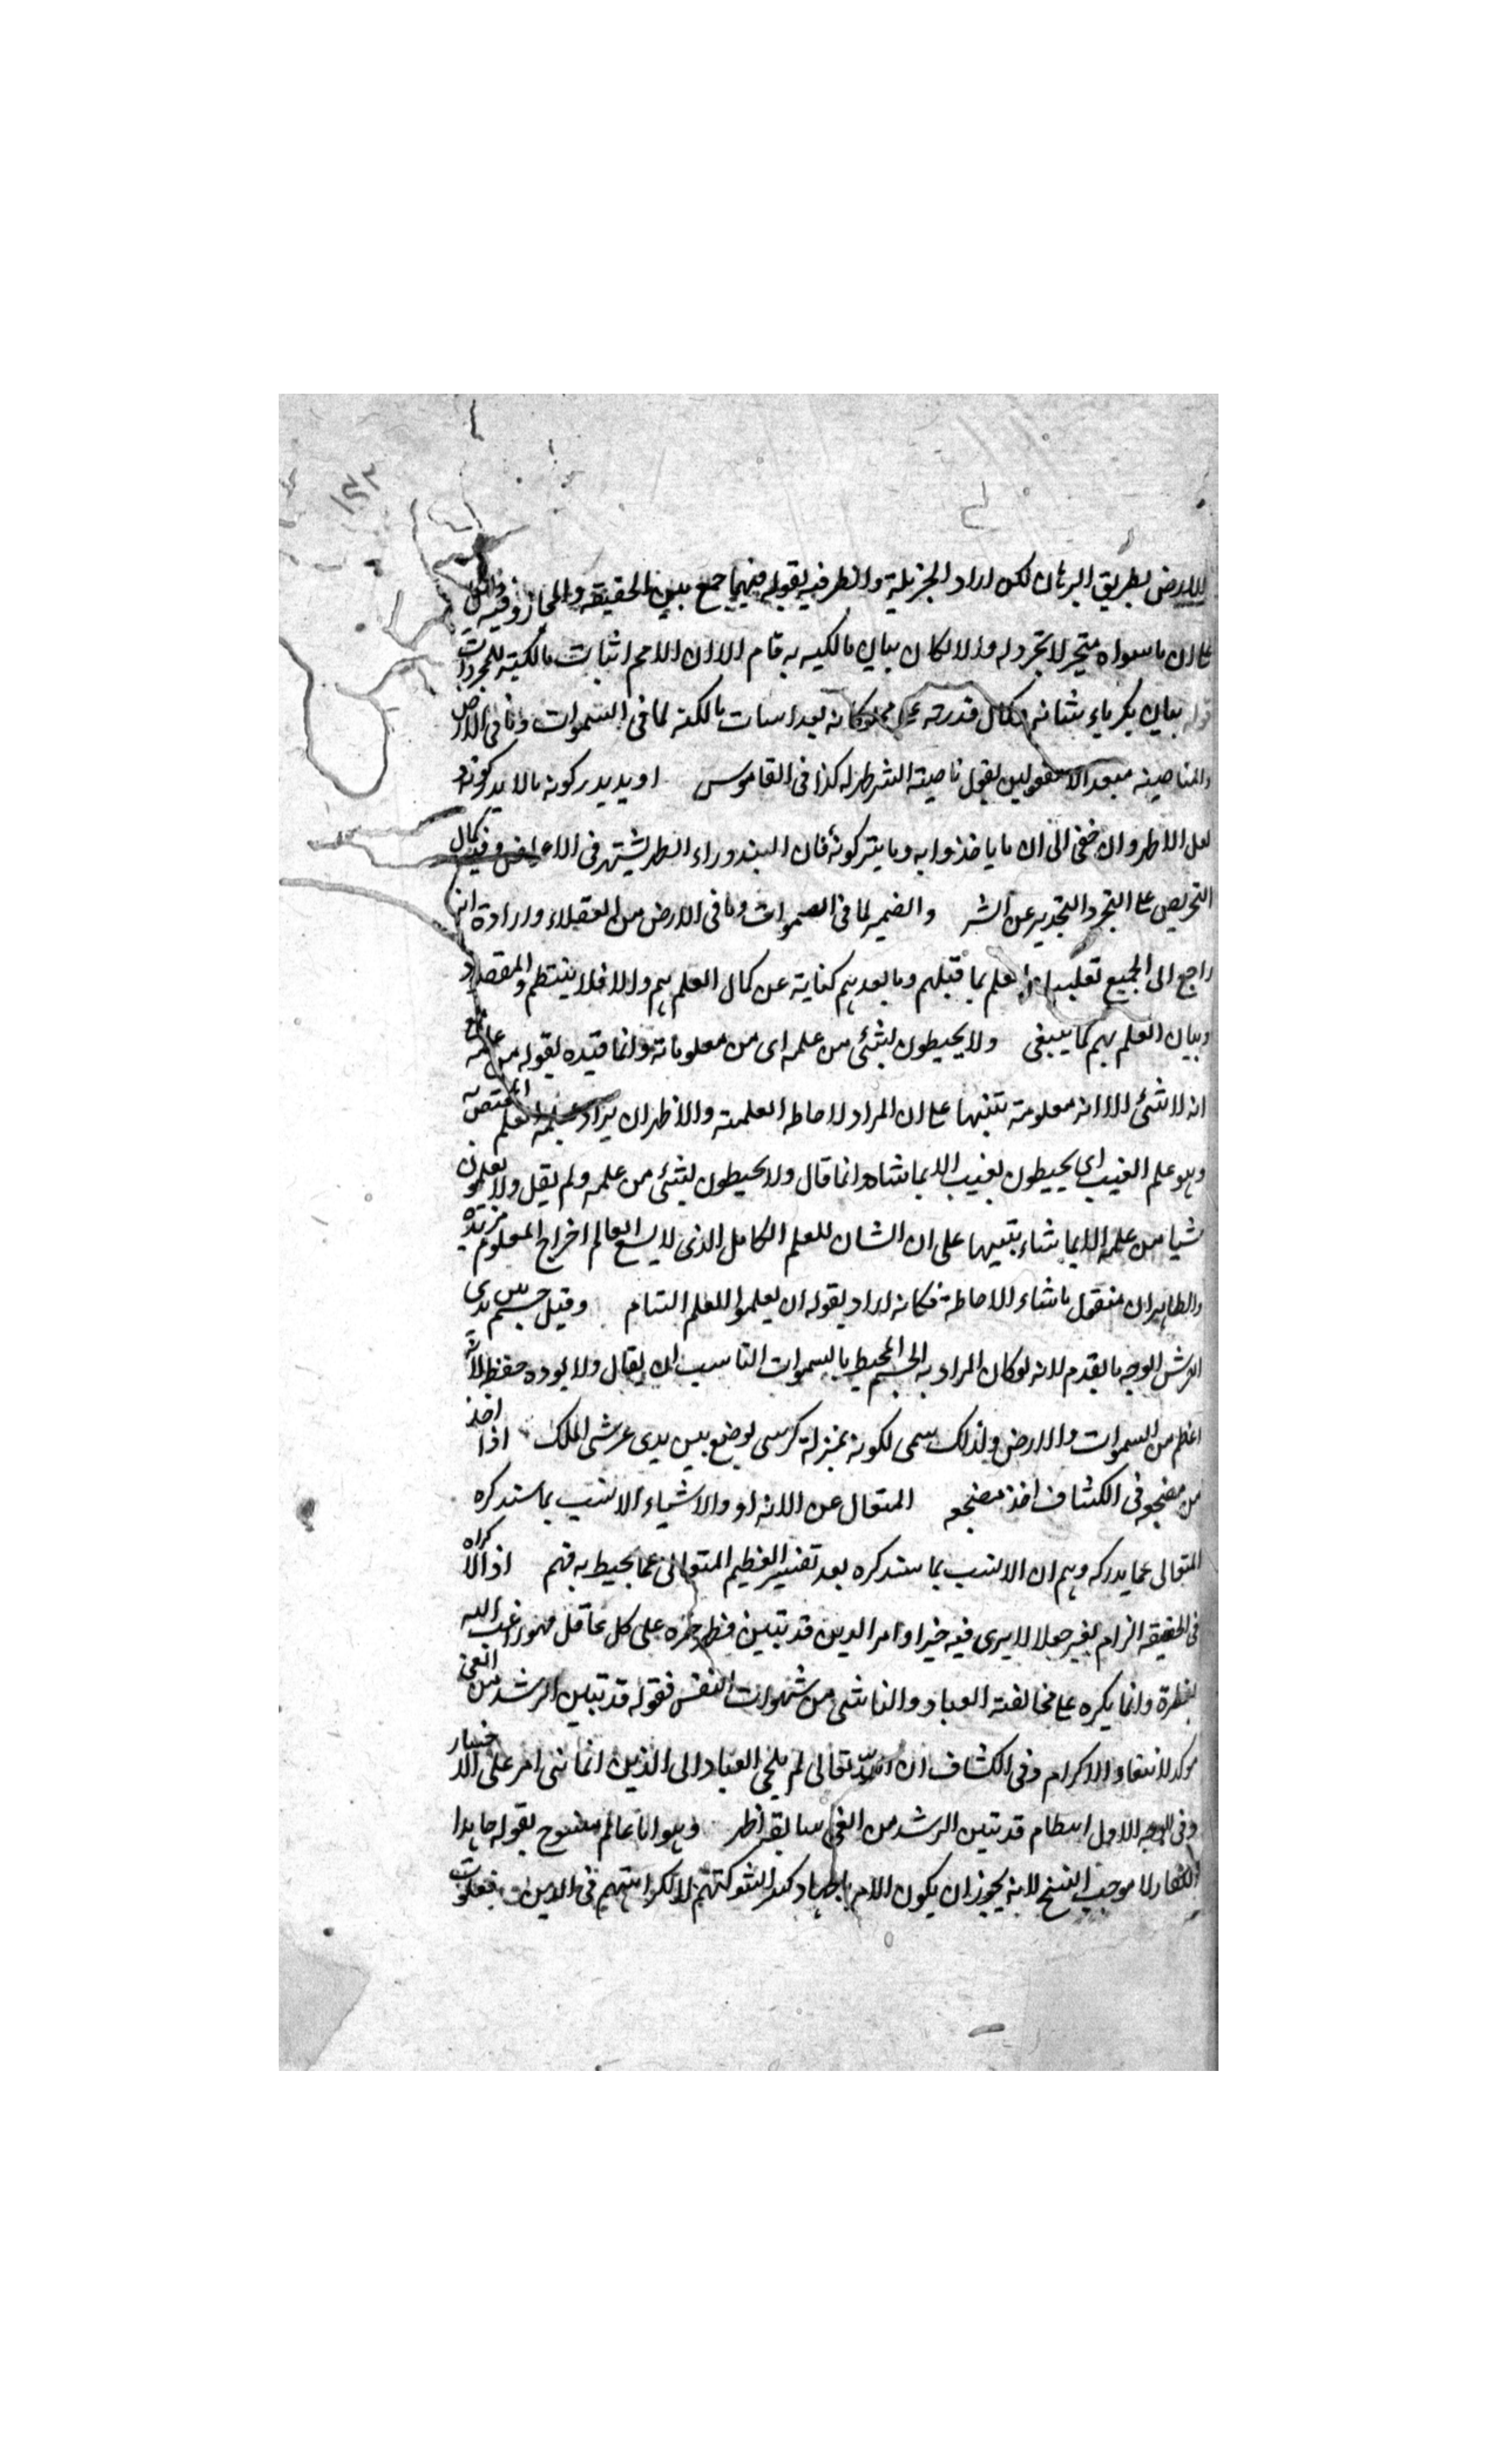 للارض بطريق البرهان لكن اراد الجزئية والظرفية بقوله فيهما جمع بين الحقيقة والمجاز وفيه
على ان ما سواه متحيز لا تجرد له ولا لكان بيان مالكيه به قام الا ان الاهم اثبات مالكيته للمجردات
بيان لكبرياء شانه كمال قدرته وكانه بعد اسات مالكته لما فى السموات وما فى الارض
والمناصبة لقول ناصبته الشر كذا فى القاموس او يريد يدركونه ما لا يدركونه
لعل الاظهر وان خفى ان ما ياخذوا به وما يتركونه فان النبذ وراء الظهر يشتهر فى الاعراض وفيه كمال
التحريص على التجرد عن الشر والضمير لما فى السموات وما فى الارض من العقلاء وارادة انه
راجع الى الجميع تغليبا العلم بما قبلهم وما بعدهم كناية عن كمال العلم بهم والا فلا ينتظم والمقصد
وبيان العلم بهم كما ينبغى ولا يحيطون بشئ من علمه اى من معلوماته وانما قيده بقوله من علمه
انه لا شئ الا انه معلومته تنبيها على ان المراد الاحاطه العلميته والاظهر ان يراد بعلمه العلم المختص به
وهو علم الغيب اى يحيطون بغيب الا بما شاه وانما قال ولا يحيطون بشئ من علمه ولم يقل ولا يعلمون
شيا من علمه الا بما شاء تنبيها على ان الشان للعلم الكامل الذى لا يسع العالم اخراج المعلوم
والظاهر ان مفعول ما شاء الاحاطة فكانه اراد بقوله ان يعلموا العلم التام وقيل جسم بين يدى
العرش الوجه ما تقدم لانه لو كان المراد به الجسم المحيط بالسموات التناسب ان يقال ولا يوده حفظ
اعظم من السموات والارض ولذلك سمى لكونه بمنزلة كرسى يوضع بين يدى عرش الملك اذا اخذ
من مضجعه فى الكشاف اخذ مضجعه المتعال عن الانداد والاشياء الانسب بما ستدكره
المتعالى عما يدركه وهم ان الانسب بما ستدكره بعد تفسير العظيم المتعالى عما يحيط به فهم اذ الاكراه
فى الحقيقة الزام بغير حملا لا يرى فيه خيرا وامر الدين قد تبين على كل عاقل فهو راغب اليه
بفطرة وانما يكره على مخالفته العباد والناشى من شهوات النفس فقوله قد تبين الرشد من الغى
موكد لانتفاء الاكرام وفى الكشاف ان الله تعالى لم يلجى العباد الى الذين انما بنى امر على الاختيار
وفى الوجه الاول قد تبين الرشد من الغى سابقه اظهر وهو اما عالم منسوخ بقوله جاهدا
الكفار لا موجب النسخ لانه يجوز ان يكون الامر بالجهاد لكسر شوكتهم لا لكراهتهم فى الدين